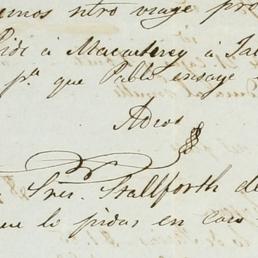 ntro viaje pro
Pide à Macauterey à
p.ª que Pablo ensaye
Adios
Sres. Stallforth de
ue lo pidas en caso